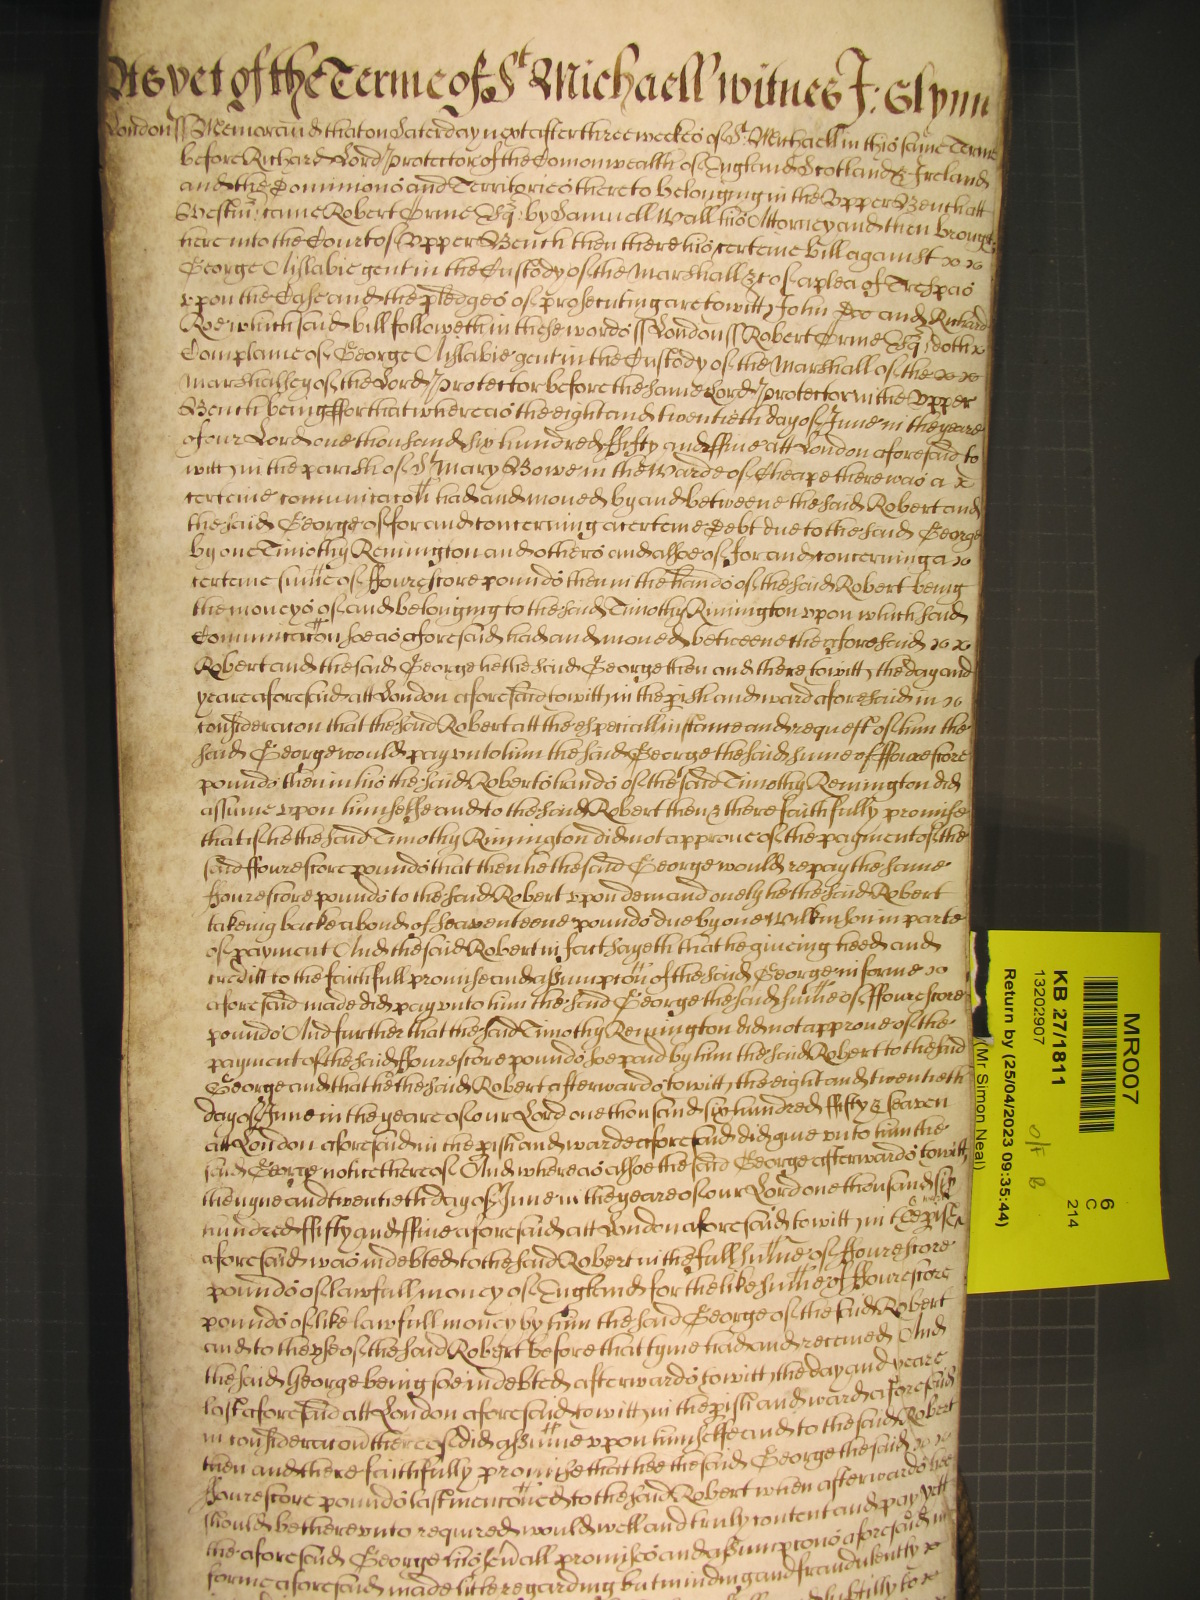 As yet of the Terme of St Michaell witnes J: Glynn
London ss Memorand that on Saterday next after three weekes of St Michaell in this same Terme
before Richard Lord Protector of the Comonwealth of England Scotland & Ireland
and the Dominions and Territories thereto belonging in the Upper Bench att
Westmr came Robert Orme Esqr by Samuell Wall his Attorney and then brought
here into the Court of Upper Bench then there his certeine bill against
George Aislabie gent in the Custody of the Marshall &c of a plea of Trespas
upon the Case and the pledges of prosecuting are to witt John Doe and Richard
Roe which said bill followeth in these words ss London ss Robert Orme Esqr doth
Complaine of George Aislabie gent in the Custody of the Marshall of the
Marshalsey of the Lord Protector before the same Lord Protector in the Upper
Bench being ffor that whereas the eight and twentieth day of June in the yeare
of our Lord one thousand six hundred ffifty and ffive att London aforesaid to
witt in the parish of St Mary Bowe in the Warde of Cheape there was a
certeine communicacon had and moved by and betweene the said Robert and
the said George of for and concerning a certeine Debt due to the said George
by one Timothy Remington and others and alsoe of for and concerning a
certeine summe of ffourescore pounds then in the hands of the said Robert being
the moneys of and belonging to the said Timothy Rimington upon which said
Communicacon soe as aforesaid had and moved betweene the aforesaid
Robert and the said George he the said George then and there to witt the day and
yeare aforesaid att London aforesaid to witt in the pish and ward aforesaid in
consideracon that the said Robert att the especiall instance and request of him the
said George would pay unto him the said George the said summe of ffourescore
pounds then in his the said Roberts hands of the said Timothy Remington did
assume upon himselfe and to the said Robert then & there faithfully promise
that if he the said Timothy Rimington did not approve of the payment of the
said ffourescore pounds that then he the said George would repay the same
ffourescore pounds to the said Robert upon demand onely he the said Robert
takeing backe a bond of seaventeene pounds due by one Wilkinson in parte
of payment And the said Robert in fact sayeth that he giveing heed and
creditt to the faithfull promise and assumpcon of the said George in forme
aforesaid made did pay unto him the said George the said summe of ffourescore
pounds And further that the said Timothy Remington did not approve of the
payment of the said ffourescore pounds soe paid by him the said Robert to the said
George and that he the said Robert afterwards to witt the eight and twentieth
day of June in the yeare of our Lord one thousand six hundred ffifty & seaven
att London aforesaid in the pish and warde aforesaid did give unto him the
said George notice thereof And whereas alsoe the said George afterwards to witt
the nyne and twentieth day of June in the yeare of our Lord one thousand six
hundred ffifty and ffive aforesaid att London aforesaid to witt in the pish & ward
aforesaid was indebted to the said Robert in the full summe of ffourescore
pounds of lawfull money of England for the like summe of ffourescore
pounds of like lawfull money by him the said George of the said Robert
and to the use of the said Robert before that tyme had and received And
the said George being soe indebted afterwards to witt the day and yeare
last aforesaid att London aforesaid to witt in the pish and ward aforesaid
in consideracon thereof did assume upon himselfe and to the said Robert
then and there faithfully promise that hee the said George the said
ffourescore pounds last menconed to the said Robert when afterwards hee
should be thereunto required would well and truly content and pay yett
the aforesaid George his sevall promises and assumpcons aforesaid in
forme aforesaid made little regarding but minding and fraudulently
subtilly to
MR007
KB 27/1811
13202907
Return by (25/04/2023 09:35:44)
(Mr Simon Neal)
6
C
214